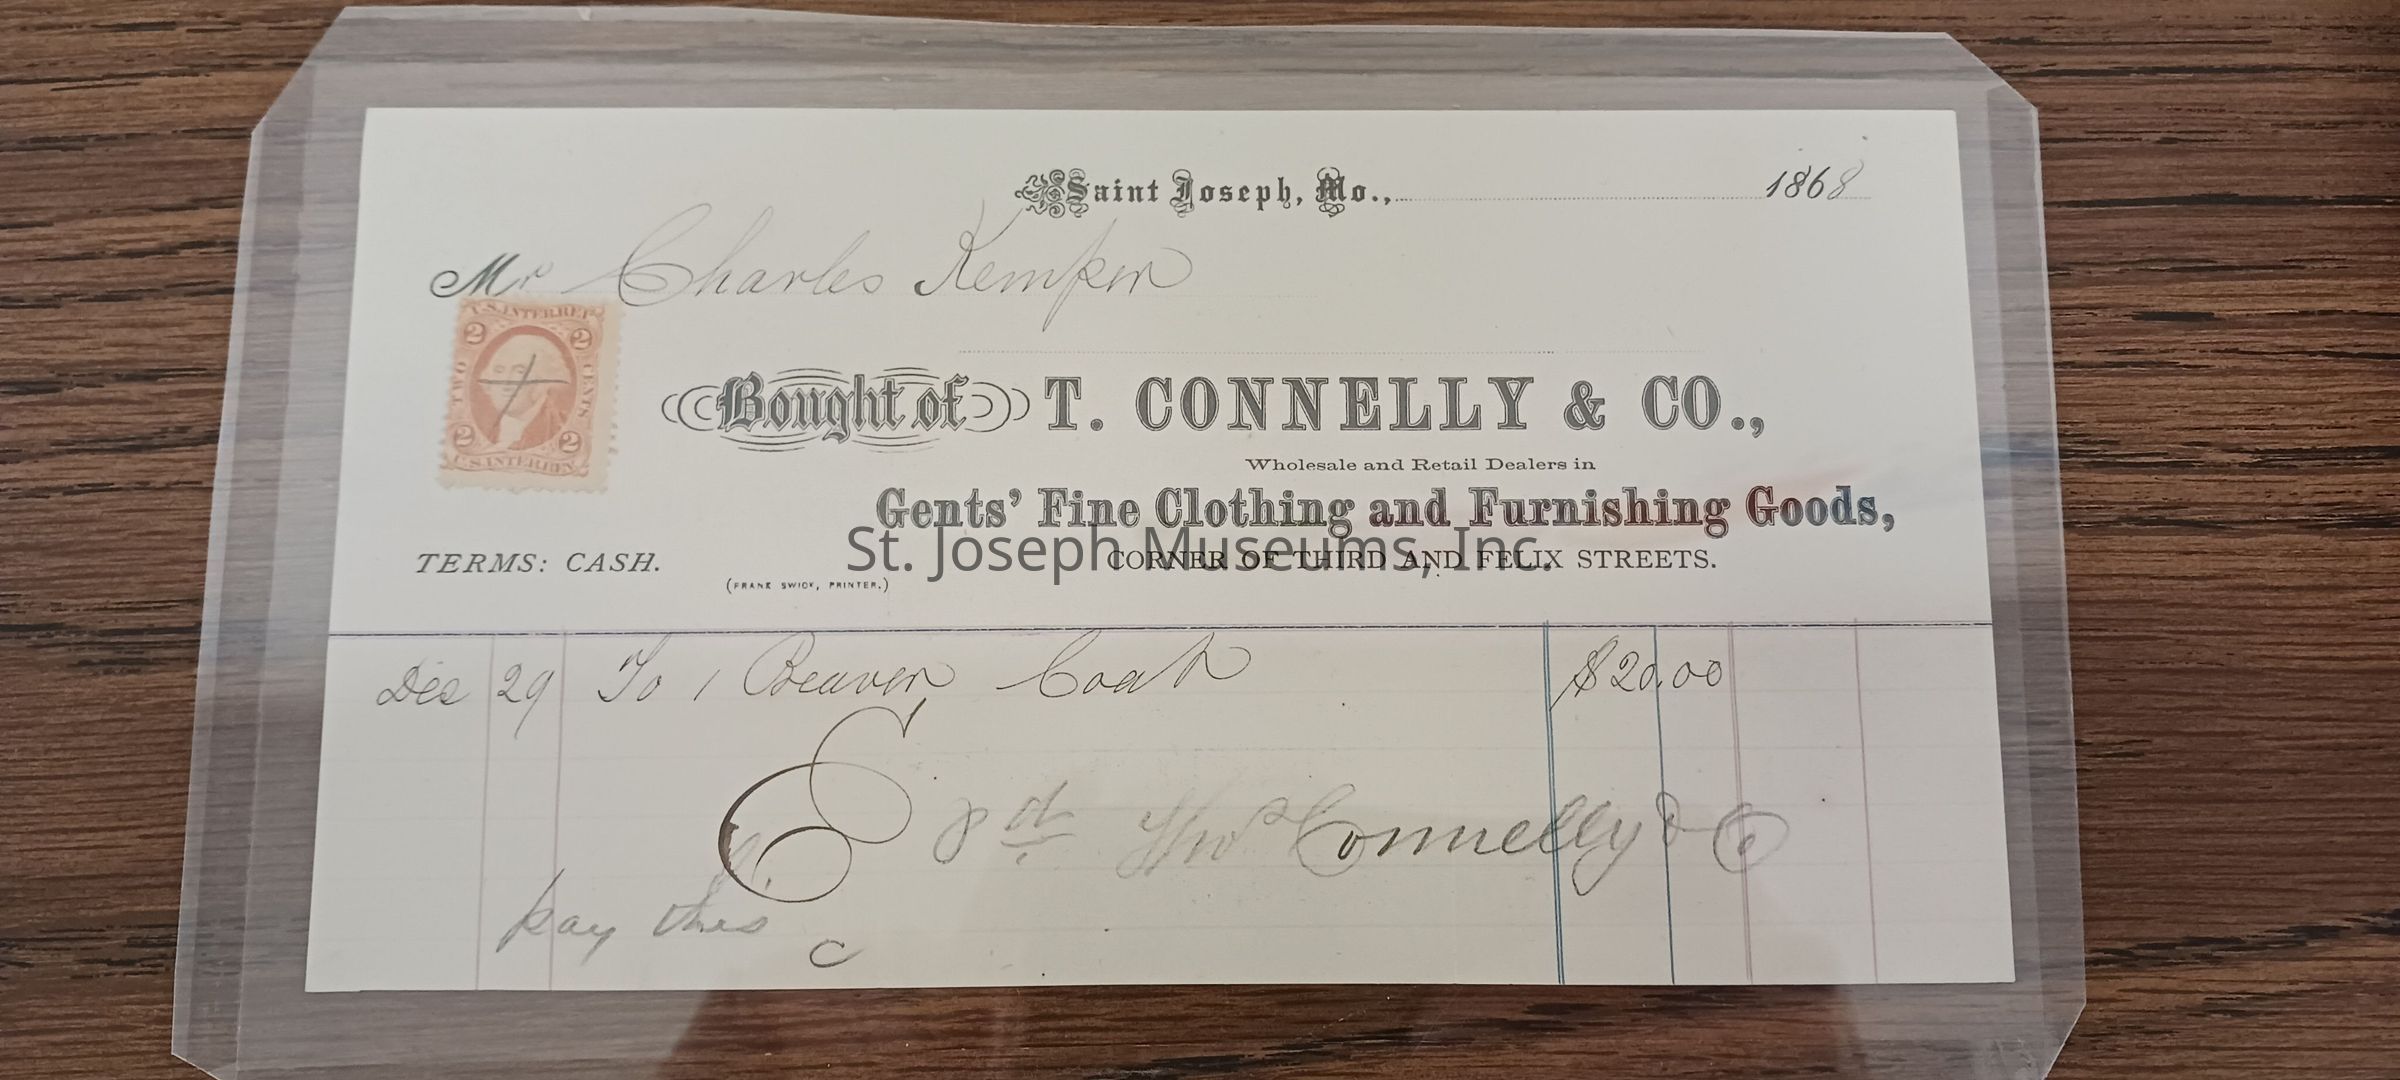 Saint Joseph, Mo., 1868
Mr Charles Kemper
U.S. INTER. REV.
2 2
TWO CENTS
2 2
U.S. INTER. REV.
Bought of T. CONNELLY & CO.,
Wholesale and Retail Dealers in
Gents' Fine Clothing and Furnishing Goods,
St. Joseph Museums, Inc.
TERMS: CASH. CORNER OF THIRD AND FELIX STREETS.
(FRANK SWICK, PRINTER.)
Dec 29 To 1 Beaver Coat $20.00
Pd Thos Connelly & Co
pay this
C